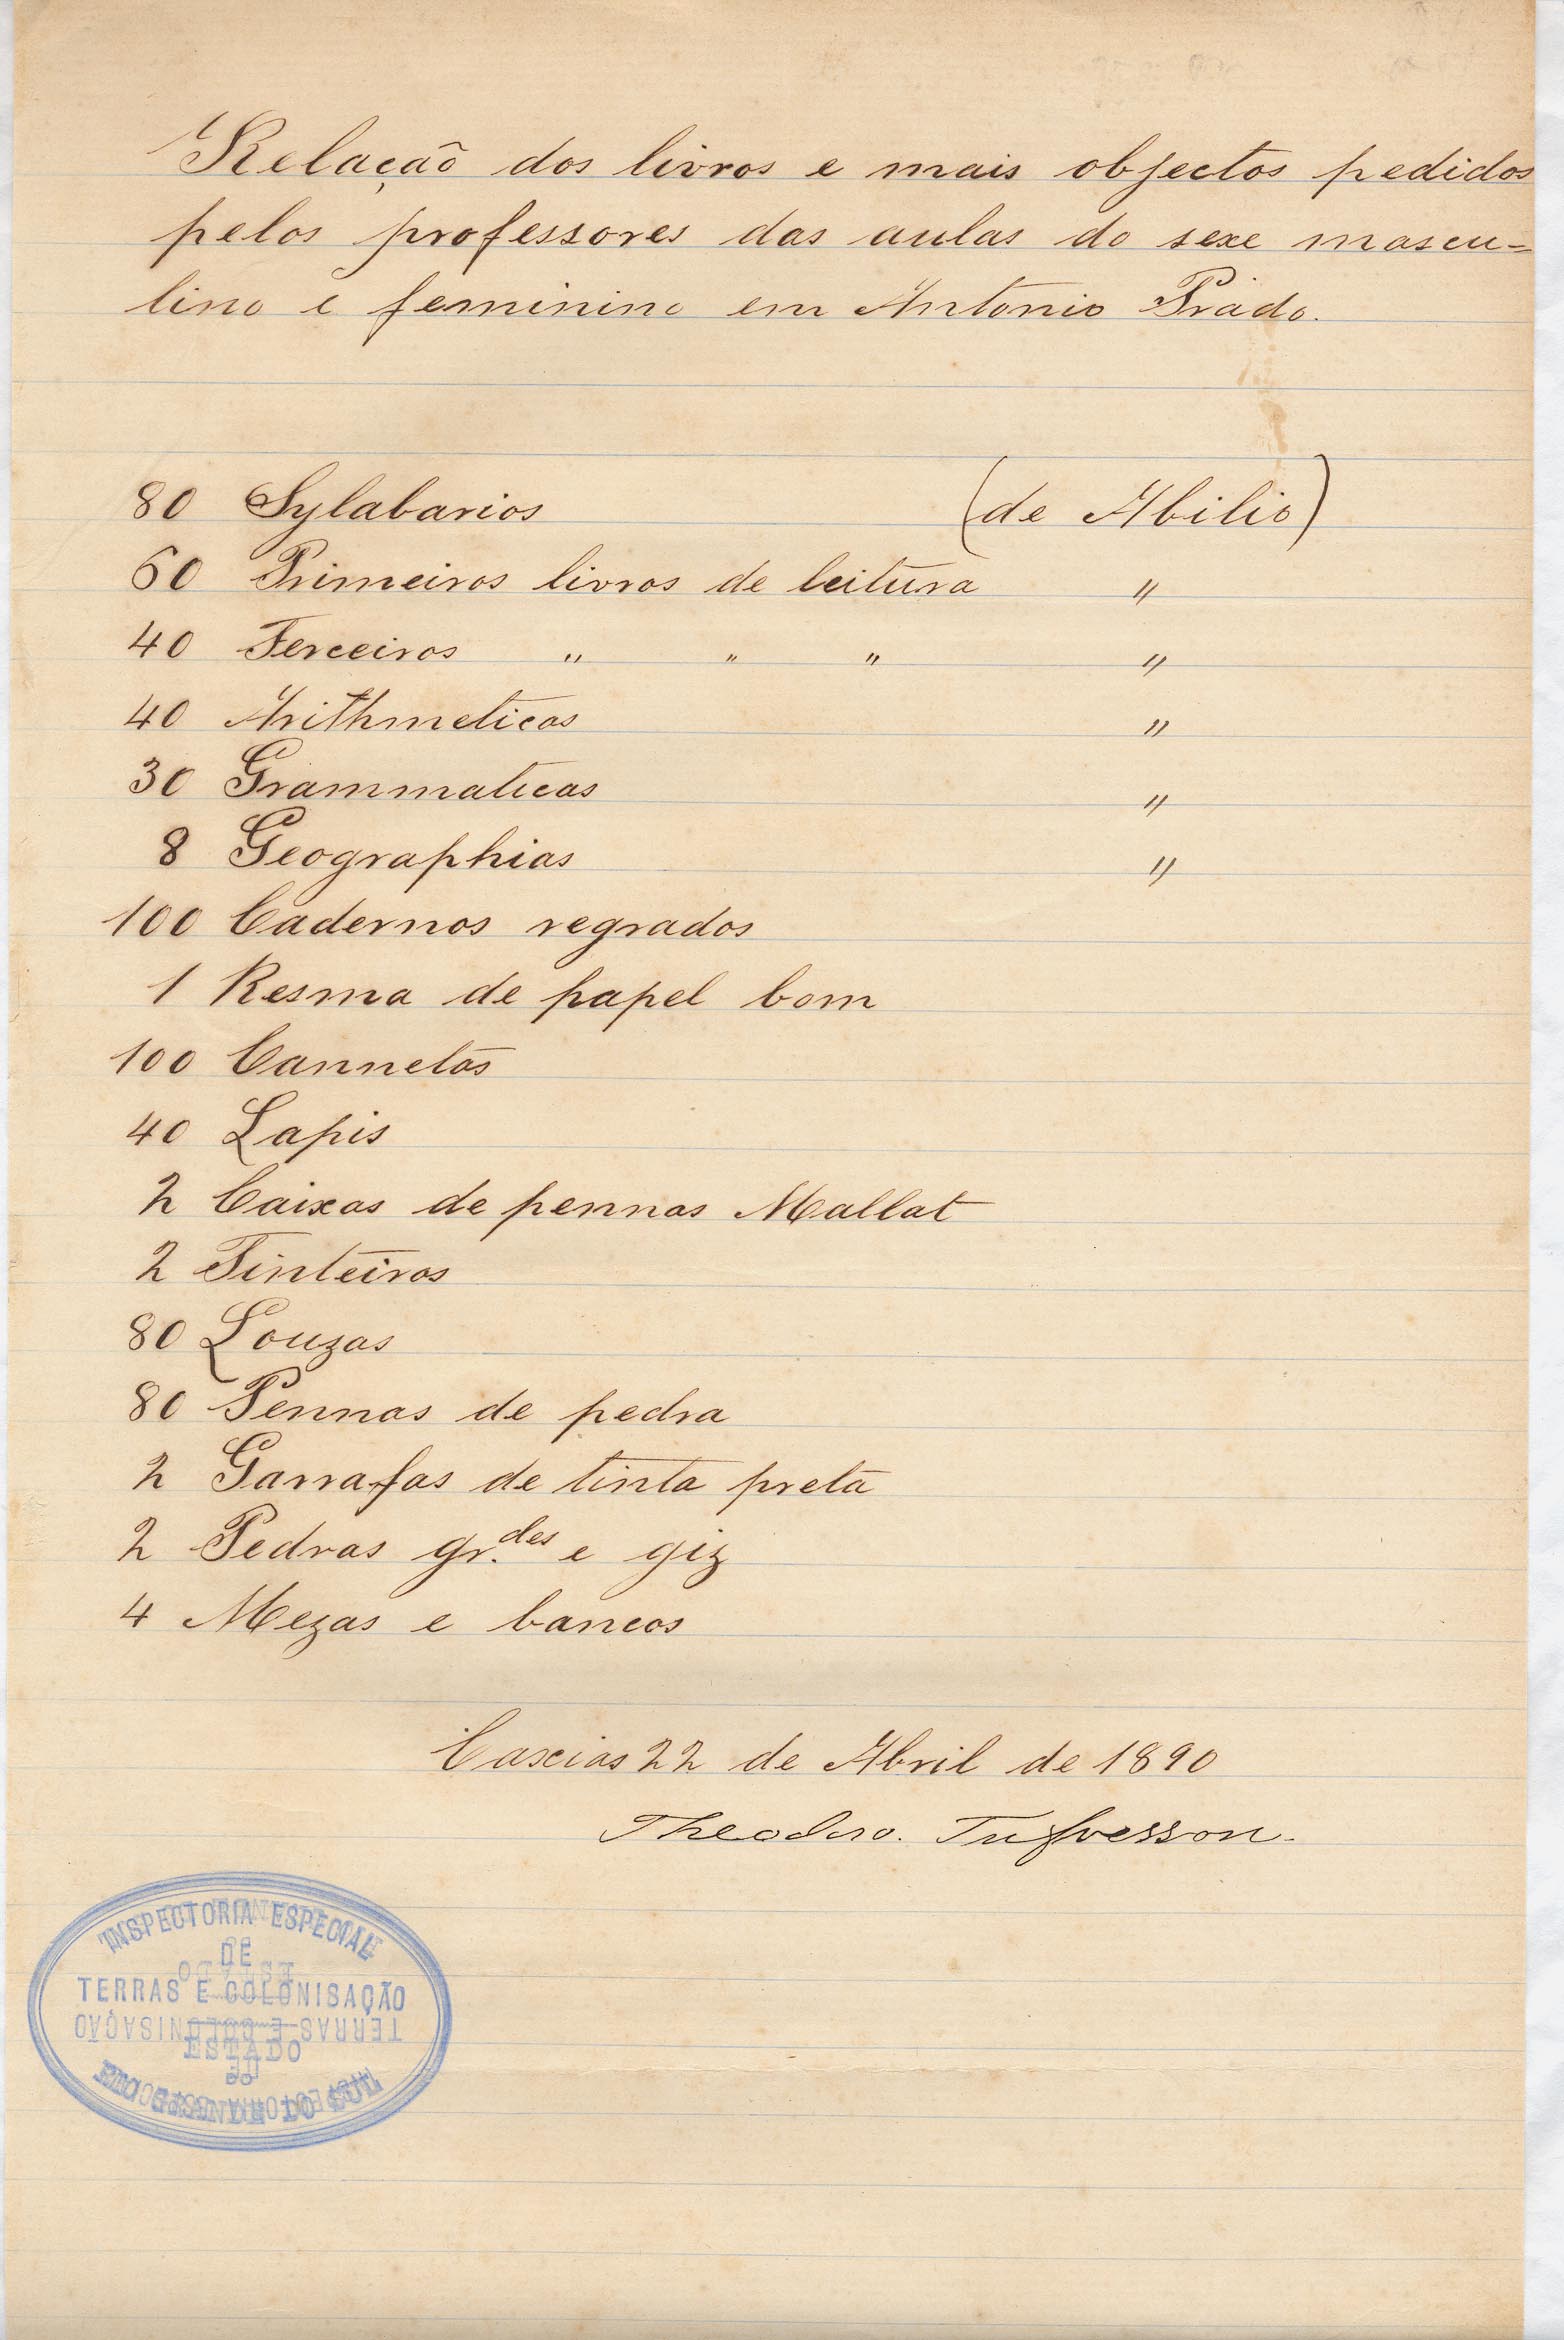 Relação dos livros e mais objectos pedidos
pelos professores das aulas do sexe mascu=
lino e feminino em Antonio Prado.
80 Sylabarios (de Abilio)
60 Primeiros livros de leitura "
40 Terceiros " " " "
40 Arithmeticas "
30 Grammaticas "
8 Geographias "
100 Cadernos regrados
1 Resma de papel bom
100 Cannetas
40 Lapis
2 Caixas de pennas Mallat
2 Tinteiros
80 Louzas
80 Pennas de pedra
2 Garrafas de tinta preta
2 Pedras gr.des e giz
4 Mezas e bancos
Caxias 22 de Abril de 1890
Theodoro. Tufvesson.
INSPECTORIA ESPECIAL
DE
TERRAS E COLONISAÇÃO
ESTADO
DO